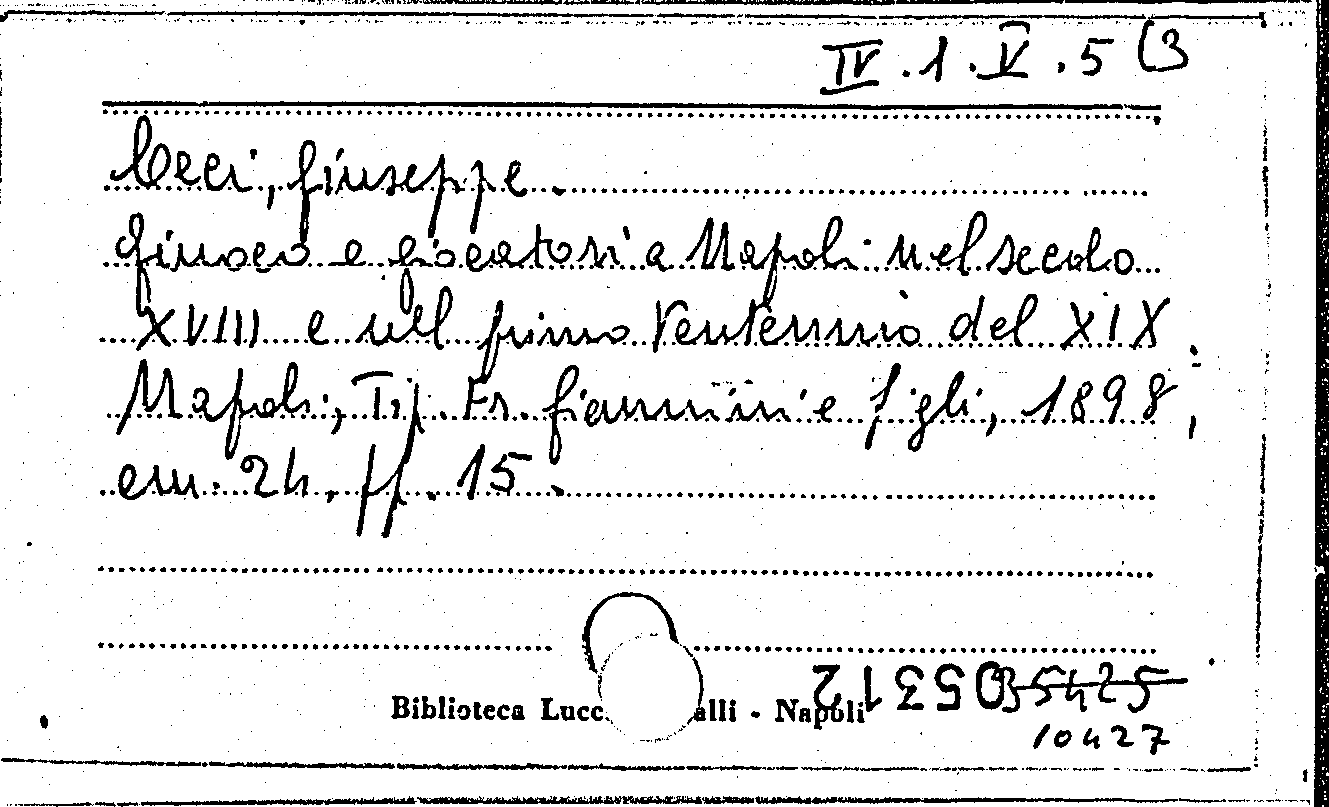 IV.1.V.5(3
Ceci, Giuseppe.
Giuoco e giocatori a Napoli nel secolo
XVIII e nel primo Ventennio del XIX.
Napoli, Tip. Fr. Giannini e figli, 1898,
cm. 24. pp. 15.
Biblioteca Lucc alli - Napoli
10427